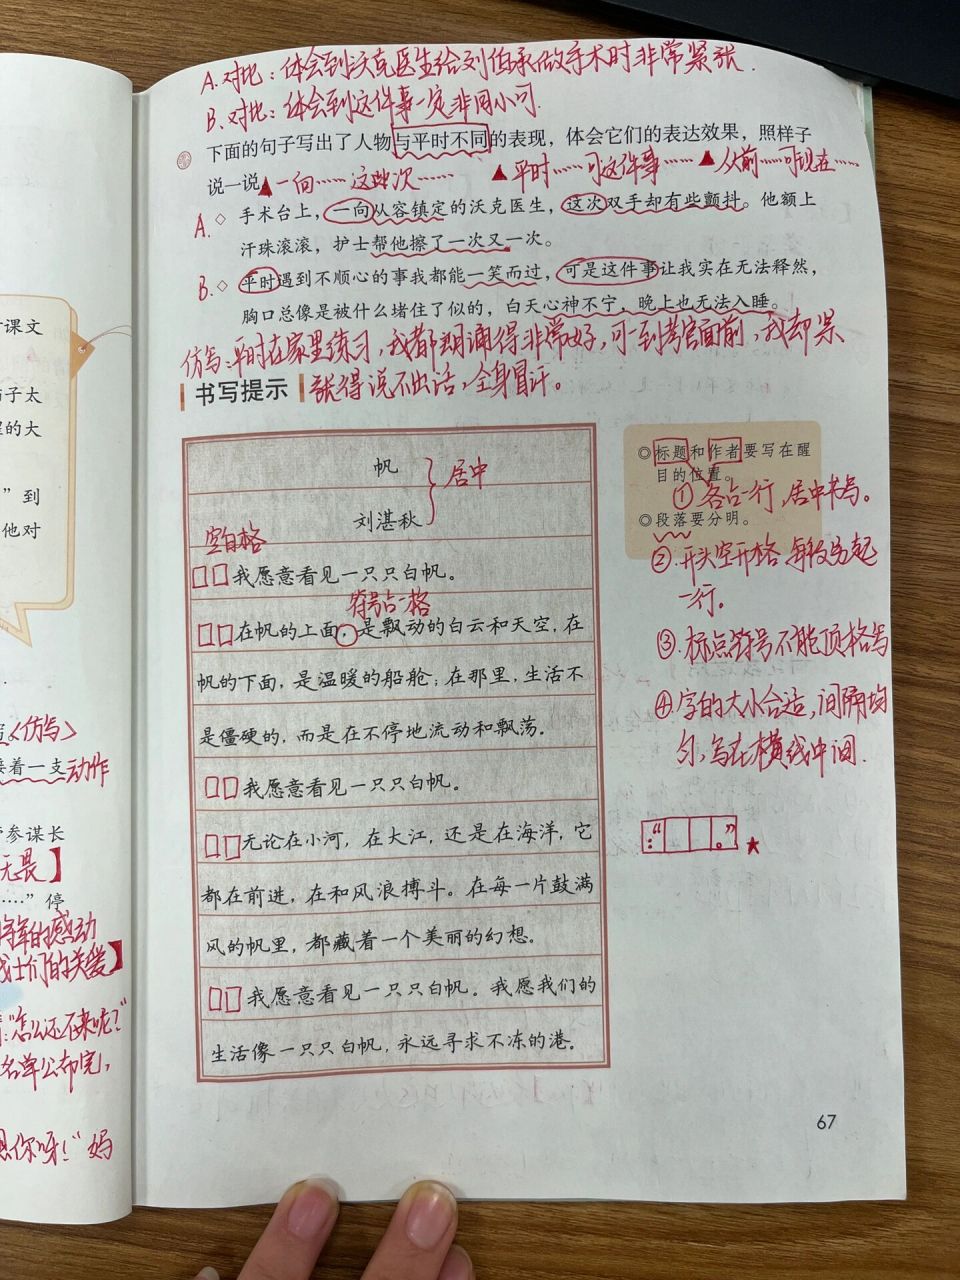 A.对比：体会到沃克医生给刘伯承做手术时非常紧张.
B.对比：体会到这件事一定非同小可.
下面的句子写出了人物与平时不同的表现，体会它们的表达效果，照样子
说一说
▲一向……这些次…… ▲平时……可这件事…… ▲从前……可现在……
A. ◇ 手术台上，一向从容镇定的沃克医生，这次双手却有些颤抖。他额上
汗珠滚滚，护士帮他擦了一次又一次。
B. ◇ 平时遇到不顺心的事我都能一笑而过，可是这件事让我实在无法释然，
胸口总像是被什么堵住了似的，白天心神不宁，晚上也无法入睡。
仿写：平时在家里练习，我都朗诵得非常好，可到考官面前，我却紧
张得说不出话，全身冒汗。
书写提示
帆
居中
刘湛秋
空白格
□□我愿意看见一只只白帆。
符号占一格
□□在帆的上面，是飘动的白云和天空，在
帆的下面，是温暖的船舱；在那里，生活不
是僵硬的，而是在不停地流动和飘荡。
□□我愿意看见一只只白帆。
□□无论在小河，在大江，还是在海洋，它
都在前进，在和风浪搏斗。在每一片鼓满
风的帆里，都藏着一个美丽的幻想。
□□我愿意看见一只只白帆。我愿我们的
生活像一只只白帆，永远寻求不冻的港。
◎标题和作者要写在醒
目的位置。
①各占一行，居中书写。
◎段落要分明。
②.开头空两格 每段另起
一行。
③.标点符号不能顶格写
④字的大小合适，间隔均
匀，写在横线中间.
：“ 。” ★
67
课文
子太
的大
”到
他对
<仿写>
接着一支动作
参谋长
无畏】
……”停
将军的感动
战士们的关爱】
：“怎么还不来呢？”
名单公布完，
想你呀！”妈